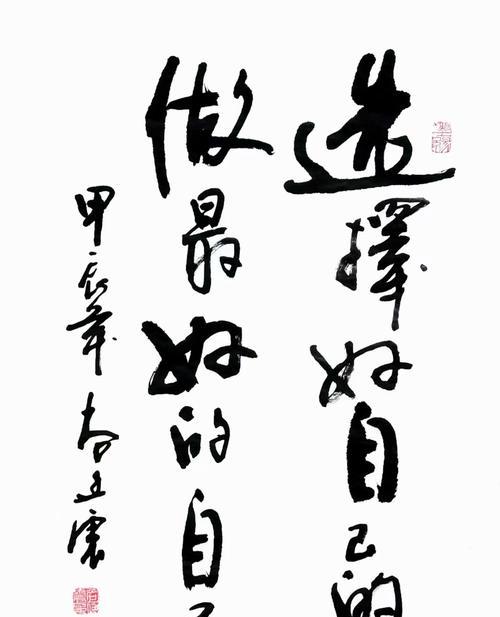 选擇好自己的
做最好的自己
甲辰年